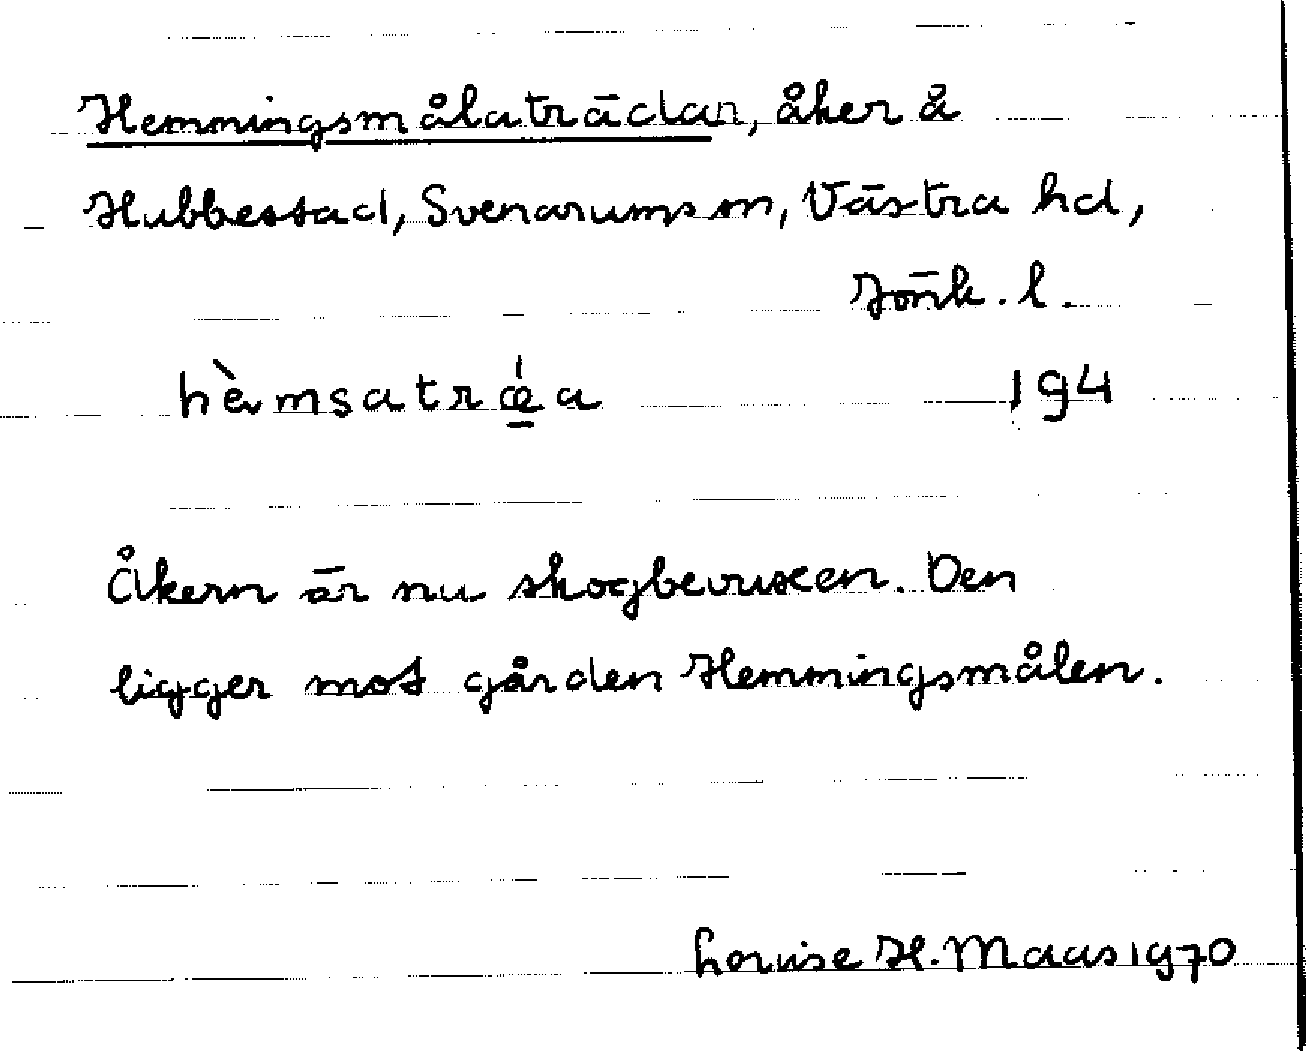 Hemmingsmålaträdan, åker å
Hubbestad, Svenarums sn, Västra hd,
Jönk. l.
hèmsatrǽ̱a 194
Åkern är nu skogbevuxen. Den
ligger mot gården Hemmingsmålen.
Louise H. Maas 1970